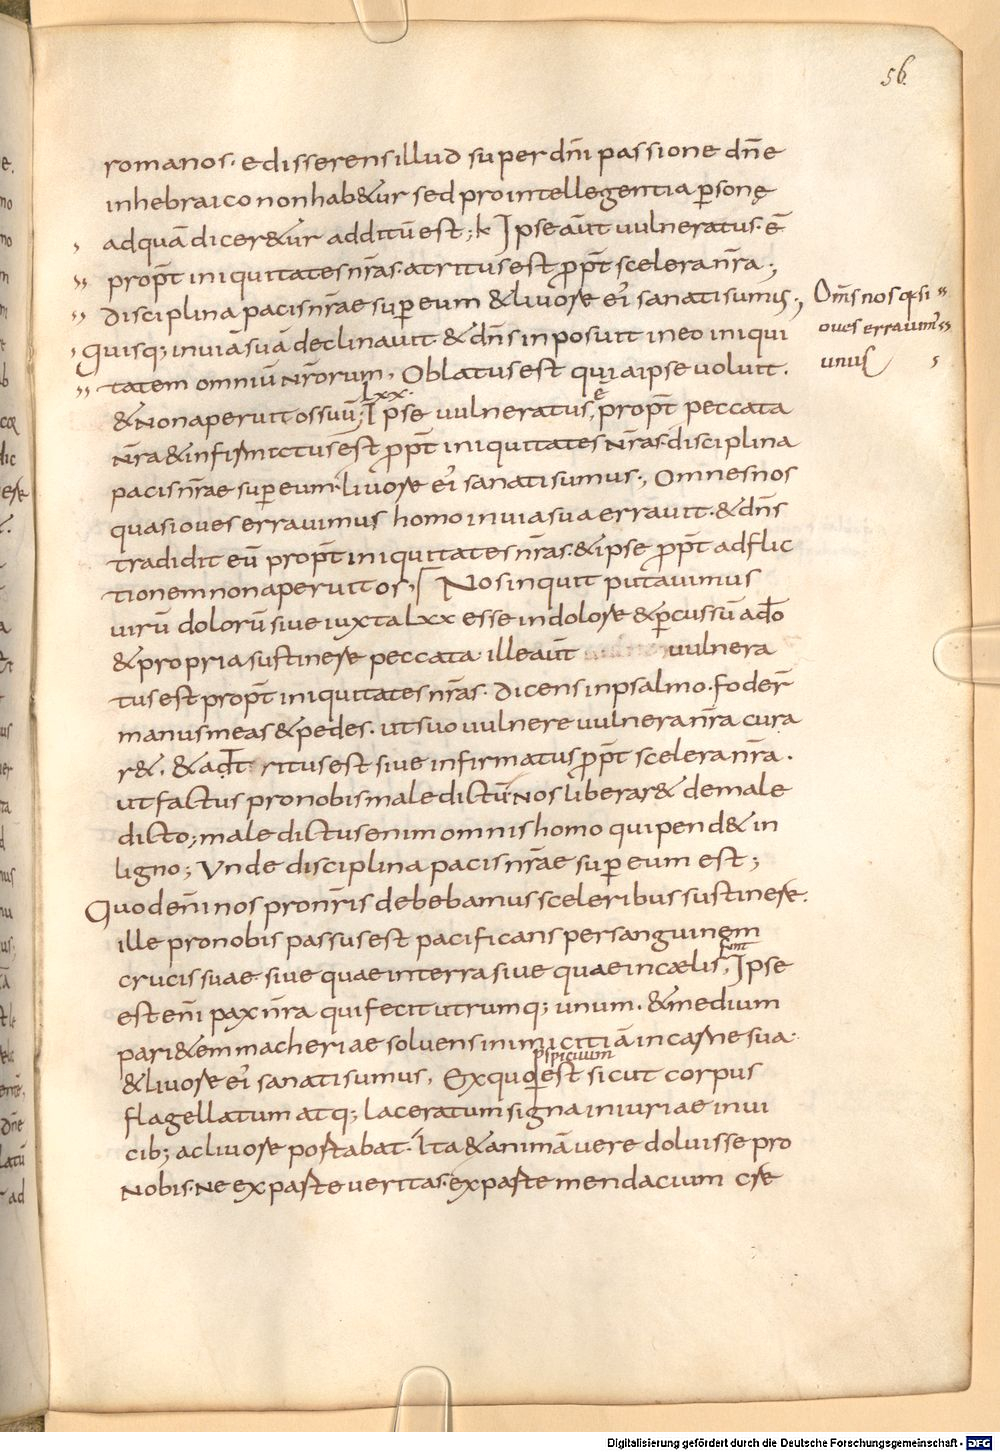 56.
romanos. edisserens illud super dn̄i passione dn̄e
in hebraico non hab&ur sed pro intellegentia p̱sonę
ad quā dicer&ur additū est; k Ipse aūt uulneratus. ē
prop̄t iniquitates nr̄as. atritus est prop̄t scelera nr̄a;
disciplina pacis nr̄ae sup eum & liuore ei' sanati sumus;
Om̄s nos q̄si
oues errauim'
unus
Quisq; in uiā suā declinauit & dn̄s inposuit in eo iniqui
tatem omniū nr̄orum. Oblatus est quia ipse uoluit.
& non aperuit os suū; lxx. Ipse uulneratus ē prop̄t peccata
nr̄a & infirmatus est prop̄t iniquitates nr̄as. disciplina
pacis nr̄ae sup eum. liuore ei' sanati sumus; Omnes nos
quasi oues errauimus homo in uia sua errauit. & dn̄s
tradidit eū prop̄t iniquitates nr̄as. & ipse prop̄t adflic
tionem non aperuit os; Nos inquit putauimus
uirū dolorū siue iuxta lxx esse in dolore & p̱cussū a do̅
& propria sustinere peccata. ille aūt uulnera
tus est prop̄t iniquitates nr̄as. dicens in psalmo. foder̄
manus meas & pedes. ut suo uulnere uulnera nr̄a cura
r&. & adtritus est siue infirmatus prop̄t scelera nr̄a.
ut factus pro nobis maledictū nos liberar& de male
dicto; maledictus enim omnis homo qui pend& in
ligno; Vnde disciplina pacis nr̄ae sup eum est;
Quod en̄i nos pro nr̄is debebamus sceleribus sustinere.
ille pro nobis passus est pacificans per sanguinem
crucis suae. siue quae in terra siue quae in cælis sunt; Ipse
est en̄i pax nr̄a qui fecit utrumq; unum. & medium
pari&em macheriae soluens inimicitiā in carne sua.
& liuore ei' sanati sumus. Ex quo p̱spicuum est sicut corpus
flagellatum atq; laceratum signa iniuriae in ui
cib; ac liuore portabat. Ita & animā uere doluisse pro
nobis. Ne ex parte ueritas. ex parte mendacium cre
Digitalisierung gefördert durch die Deutsche Forschungsgemeinschaft - DFG